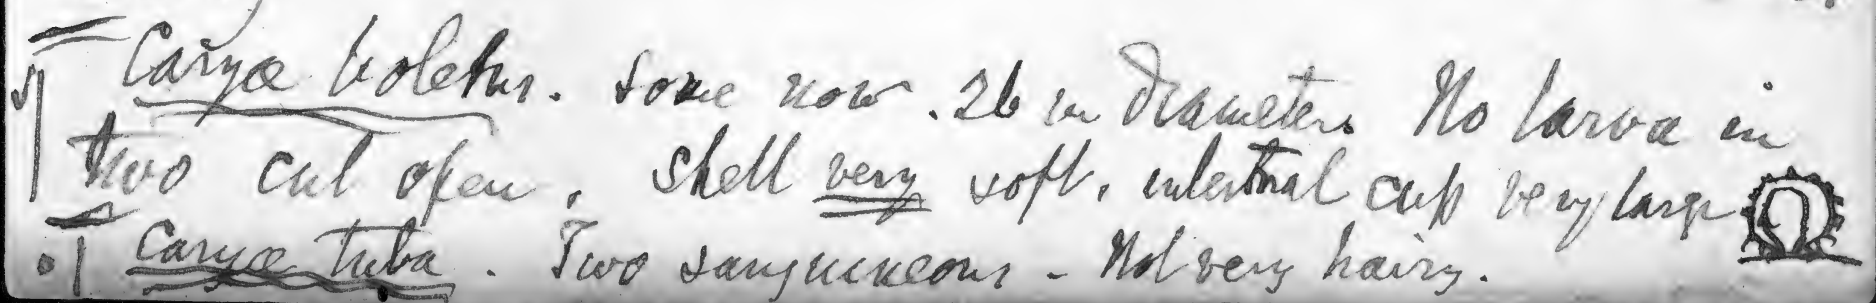 Caryae boletus. Some now .26 in diameter. No larva in
two cut open. Shell very soft, internal cup very large
Caryae tuba. Two sanguineous - Not very hairy.